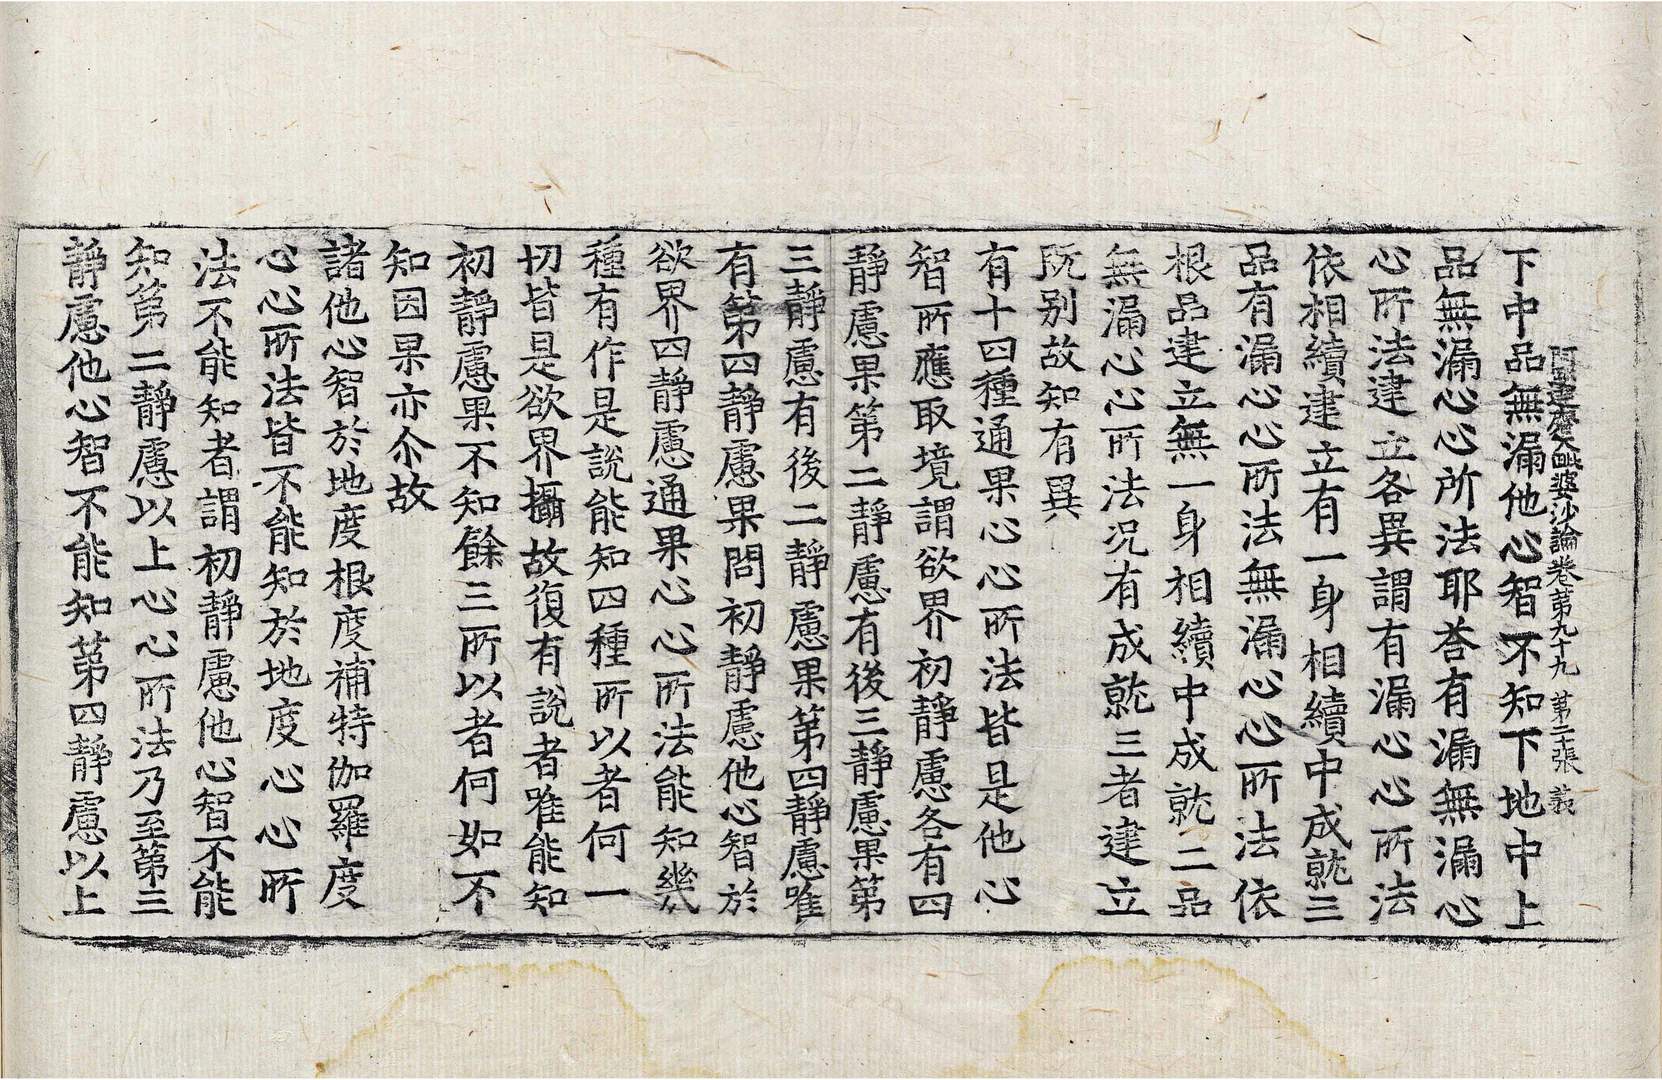 阿毗達磨大毗婆沙論卷第九十九 第二張 義
下中品無漏他心智不知下地中上
品無漏心心所法耶荅有漏無漏心
心所法建立各異謂有漏心心所法
依相續建立有一身相續中成就三
品有漏心心所法無漏心心所法依
根品建立無一身相續中成就二品
無漏心心所法况有成就三者建立
既别故知有異
有十四種通果心心所法皆是他心
智所應取境謂欲界初靜慮各有四
靜慮果第二靜慮有後三靜慮果第
三靜慮有後二靜慮果第四靜慮唯
有第四靜慮果問初靜慮他心智於
欲界四靜慮通果心心所法能知幾
種有作是説能知四種所以者何一
切皆是欲界攝故復有説者唯能知
初靜慮果不知餘三所以者何如不
知因果亦尒故
諸他心智於地度根度補特伽羅度
心心所法皆不能知於地度心心所
法不能知者謂初靜慮他心智不能
知第二靜慮以上心心所法乃至第三
靜慮他心智不能知第四靜慮以上